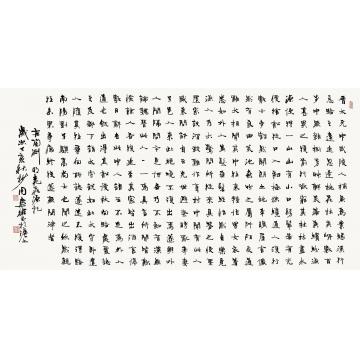 晉太元中武陵人捕魚為業緣溪行
忘路之遠近忽逢桃花林夾岸數百
步中無雜樹芳草鮮美落英繽紛漁
人甚異之復前行欲窮其林林盡水
源便得一山山有小口髣髴若有光
便舍船從口入初極狹才通人復行
數十步豁然開朗土地平曠屋舍儼
然有良田美池桑竹之屬阡陌交通
雞犬相聞其中往來種作男女衣著
悉如外人黃髮垂髫並怡然自樂見
漁人乃大驚問所從來具答之便要
還家設酒殺雞作食村中聞有此人
咸來問訊自云先世避秦時亂率妻
子邑人來此絕境不復出焉遂與外
人間隔問今是何世乃不知有漢無
論魏晉此人一一為具言所聞皆歎
惋餘人各復延至其家皆出酒食停
數日辭去此中人語云不足為外人
道也既出得其船便扶向路處處誌
之及郡下詣太守說如此太守即遣
人隨其往尋向所誌遂迷不復得路
南陽劉子驥高尚士也聞之欣然規
往未果尋病終後遂無問津者
陶淵明桃花源記
歲次